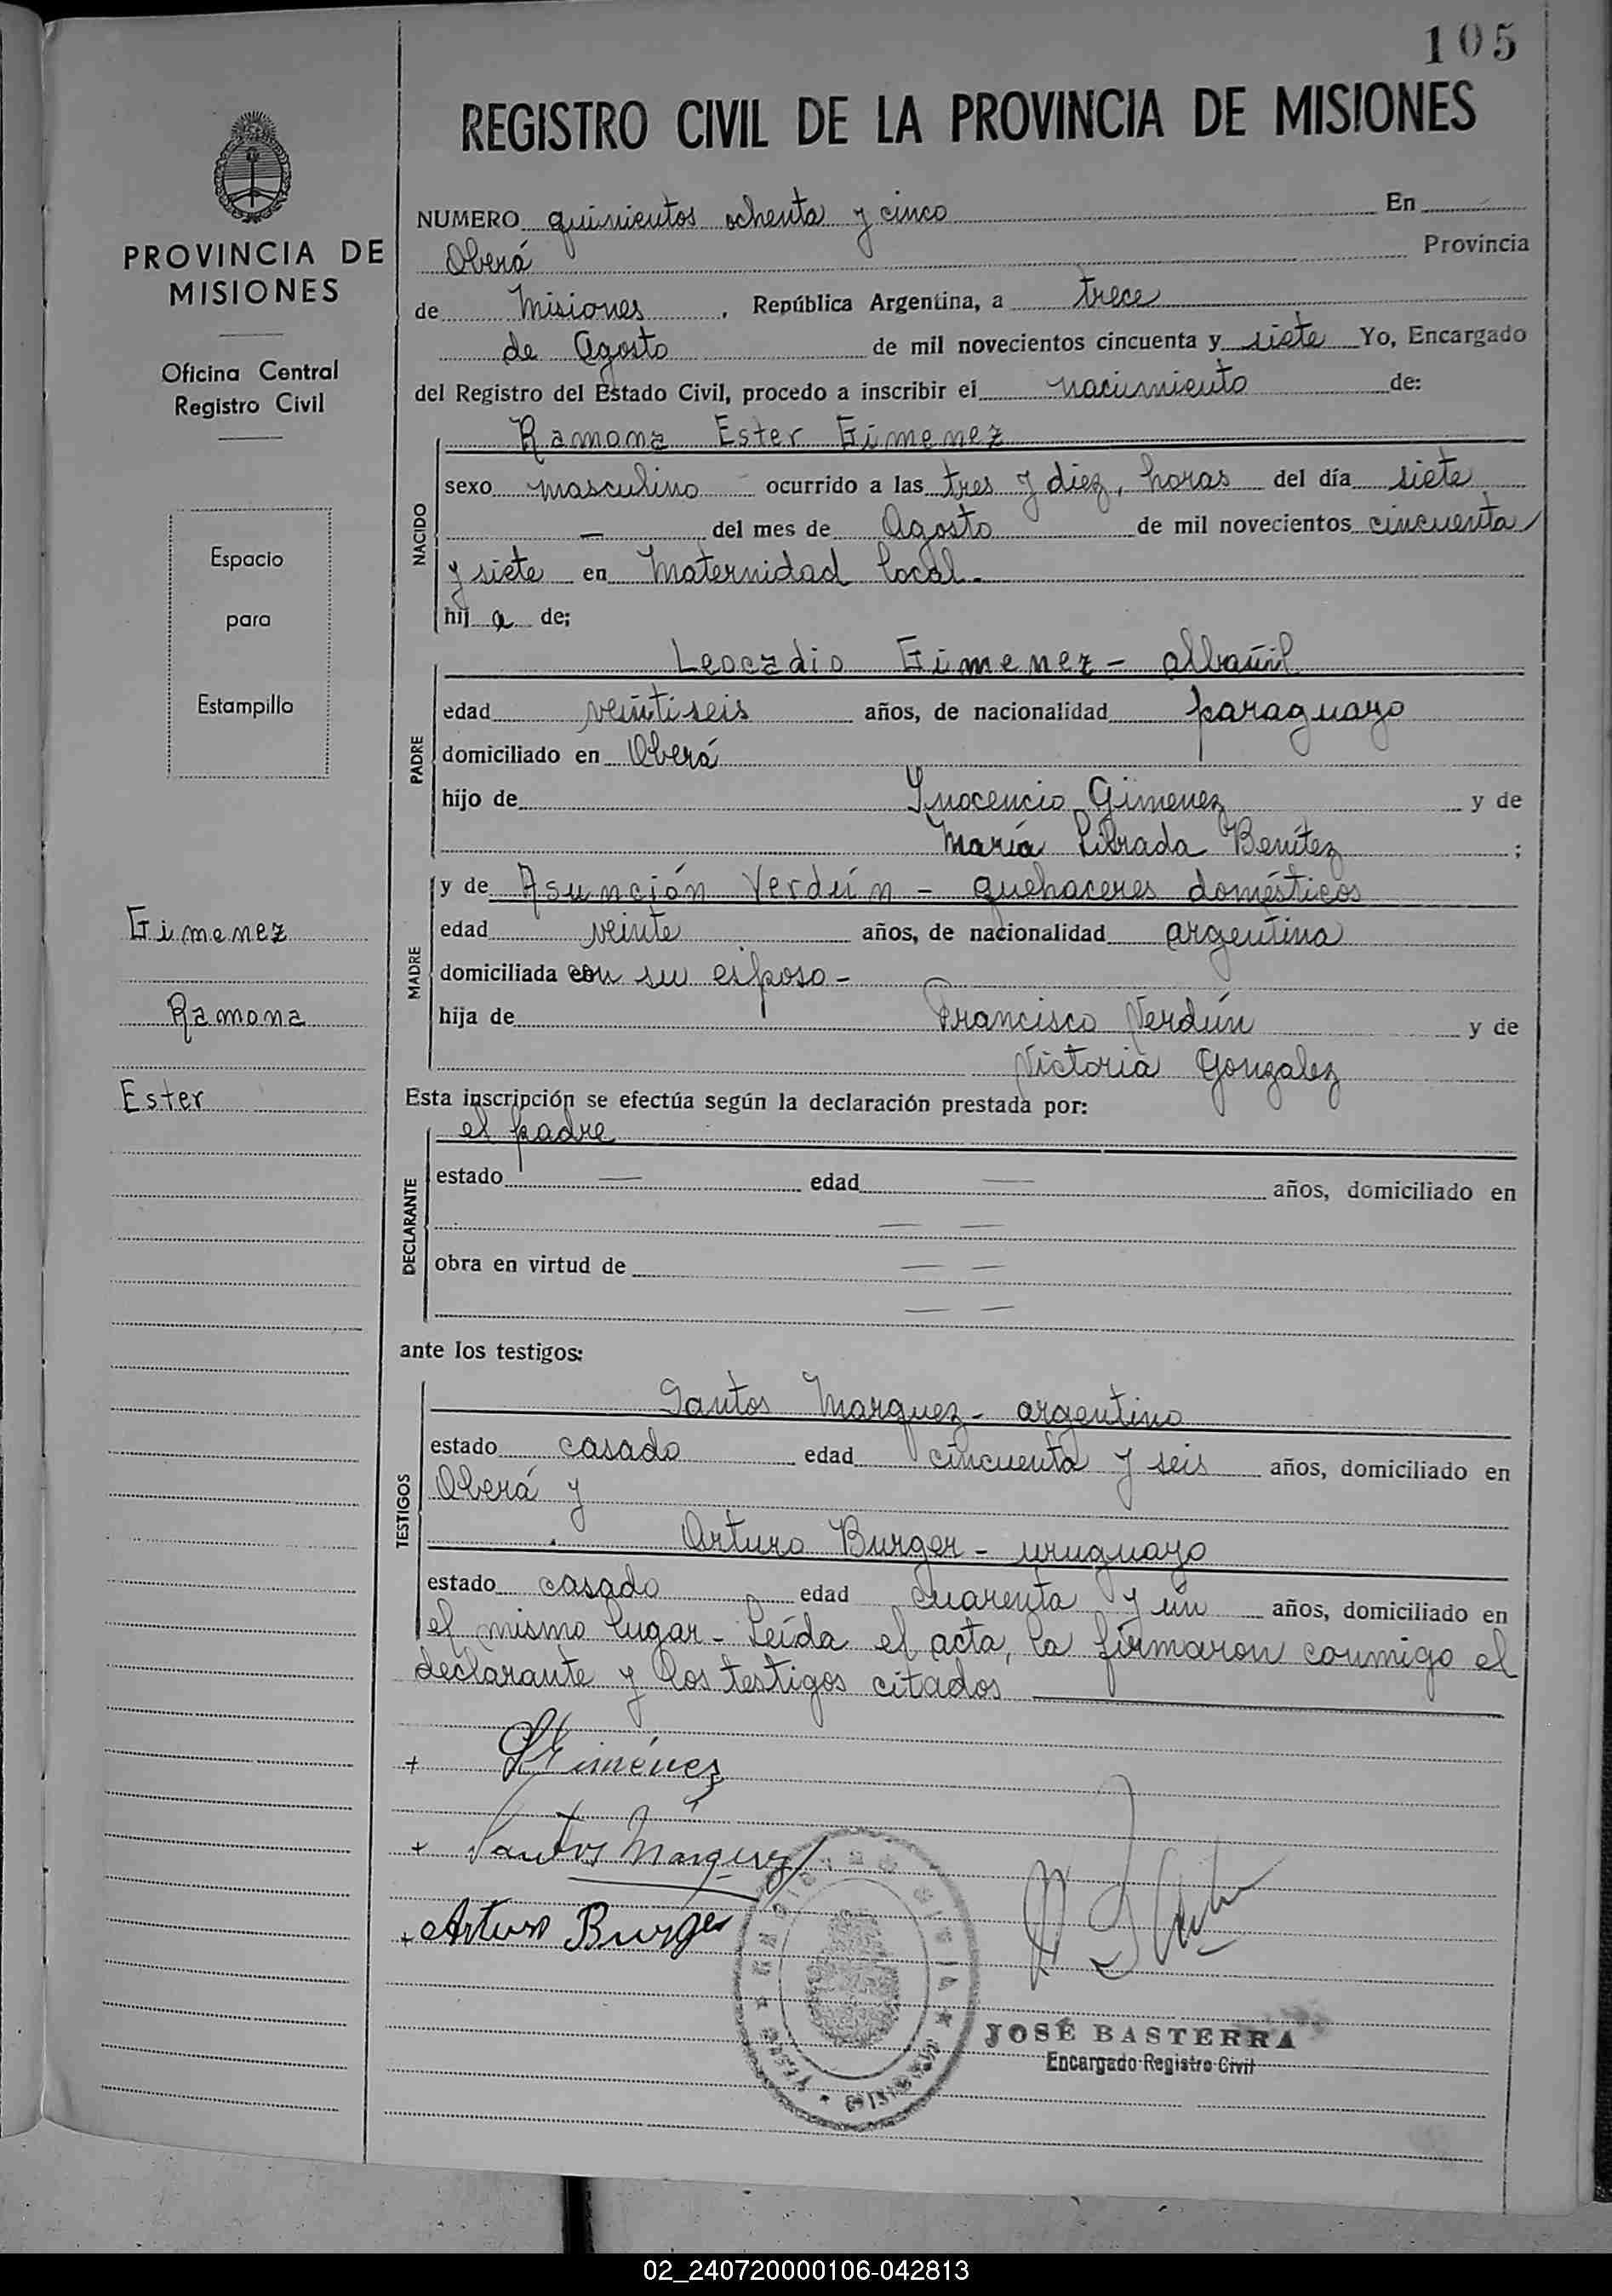 105
REGISTRO CIVIL DE LA PROVINCIA DE MISIONES
PROVINCIA DE
MISIONES
Oficina Central
Registro Civil
Espacio
para
Estampilla
Gimenez
Ramona
Ester
NUMERO quinientos ochenta y cinco En
Oberá Provincia
de Misiones, República Argentina, a trece
de Agosto de mil novecientos cincuenta y siete Yo, Encargado
del Registro del Estado Civil, procedo a inscribir el nacimiento de:
NACIDO
Ramona Ester Gimenez
sexo masculino ocurrido a las tres y diez, horas del día siete
— del mes de Agosto de mil novecientos cincuenta
y siete en Maternidad local.-
hij a de;
PADRE
Leocadio Gimenez - albañil
edad veintiseis años, de nacionalidad paraguayo
domiciliado en Oberá
hijo de Inocencio Gimenez y de
María Librada Benítez ;
MADRE
y de Asunción Verdún - quehaceres domésticos
edad veinte años, de nacionalidad argentina
domiciliada con su esposo -
hija de Francisco Verdún y de
Victoria Gonzalez
Esta inscripción se efectúa según la declaración prestada por:
DECLARANTE
el padre
estado — edad — años, domiciliado en
— —
obra en virtud de — —
— —
ante los testigos:
TESTIGOS
Santos Marquez - argentino
estado casado edad cincuenta y seis años, domiciliado en
Oberá y
Arturo Burger - uruguayo
estado casado edad cuarenta y un años, domiciliado en
el mismo lugar - Leída el acta, la firmaron conmigo el
declarante y los testigos citados
+ LGiménez
+ Santos Márquez
+ Arturo Burger
REGISTRO CIVIL
MISIONES
JOSÉ BASTERRA
Encargado Registro Civil
02_240720000106-042813